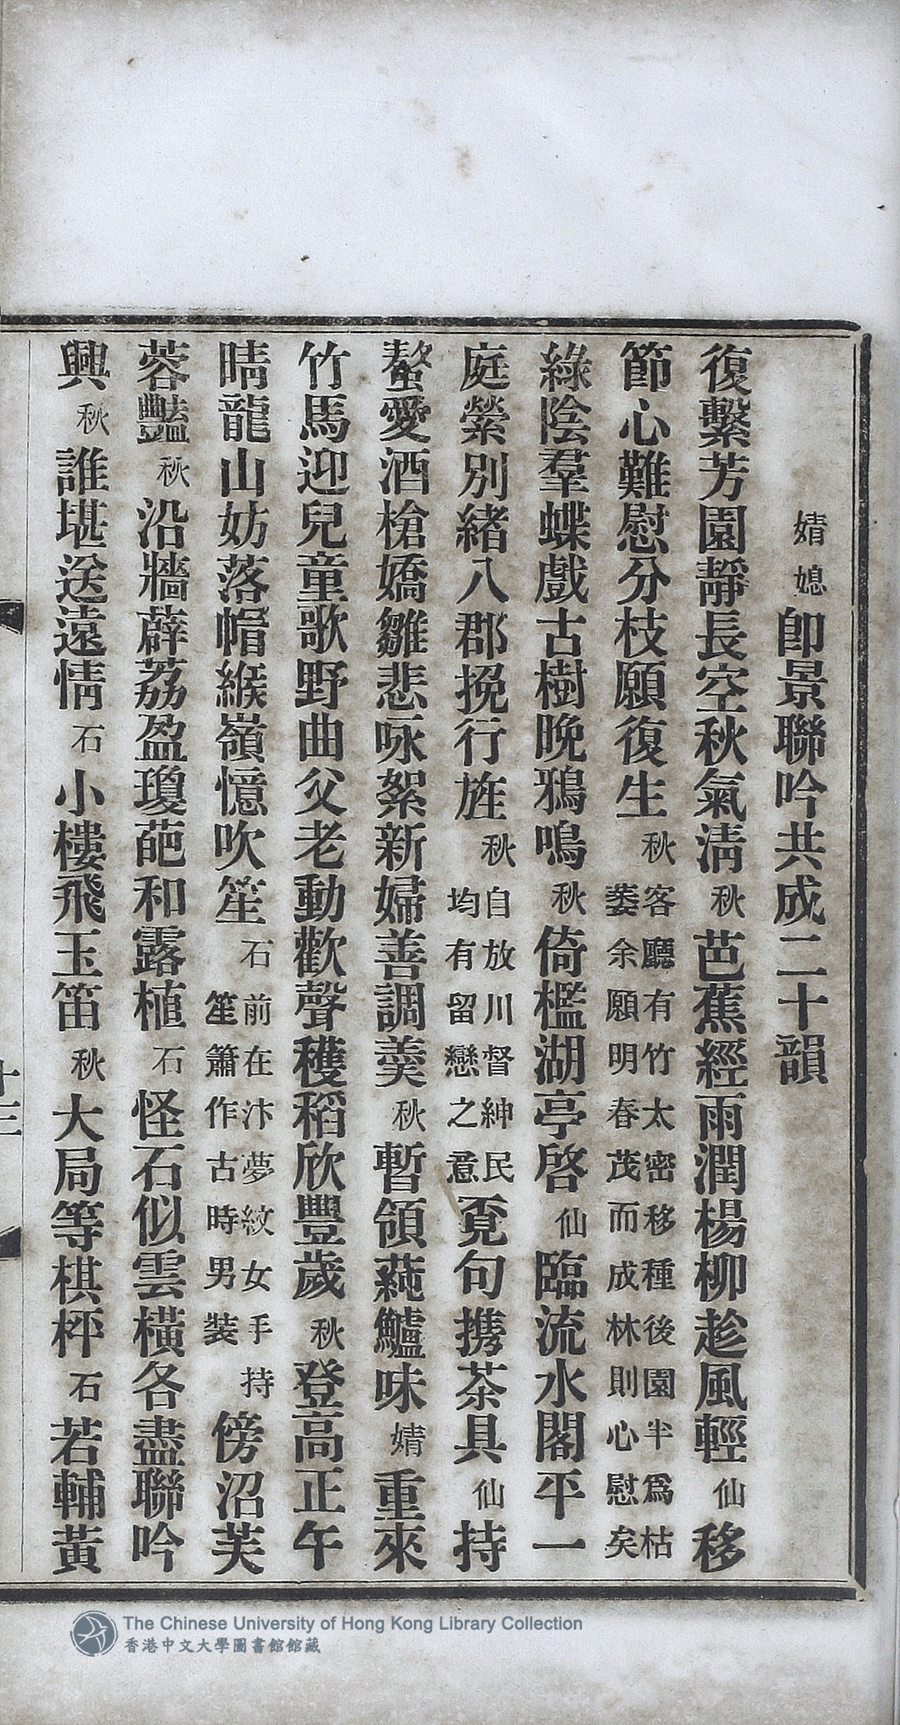 婧媳即景聯吟共成二十韻
復繫芳園靜長空秋氣清秋芭蕉經雨潤楊柳趁風輕仙移
節心難慰分枝願復生秋客廳有竹太密移種後園半爲枯萎余願明春茂而成林則心慰矣
綠陰羣蝶戲古樹晚鴉鳴秋倚檻湖亭啓仙臨流水閣平一
庭縈別緒八郡挽行旌秋自放川督紳民均有留戀之意覓句攜茶具仙持
螯愛酒槍嬌雛悲咏絮新婦善調羹秋暫領蒓鱸味婧重來
竹馬迎兒童歌野曲父老動歡聲穫稻欣豐歲秋登高正午
晴龍山妨落帽緱嶺憶吹笙石前在汴夢紋女手持笙簫作古時男裝傍沼芙
蓉豔秋沿牆薜荔盈瓊葩和露植石怪石似雲橫各盡聯吟
興秋誰堪送遠情石小樓飛玉笛秋大局等棋枰石若輔黃
十三
The Chinese University of Hong Kong Library Collection
香港中文大學圖書館館藏